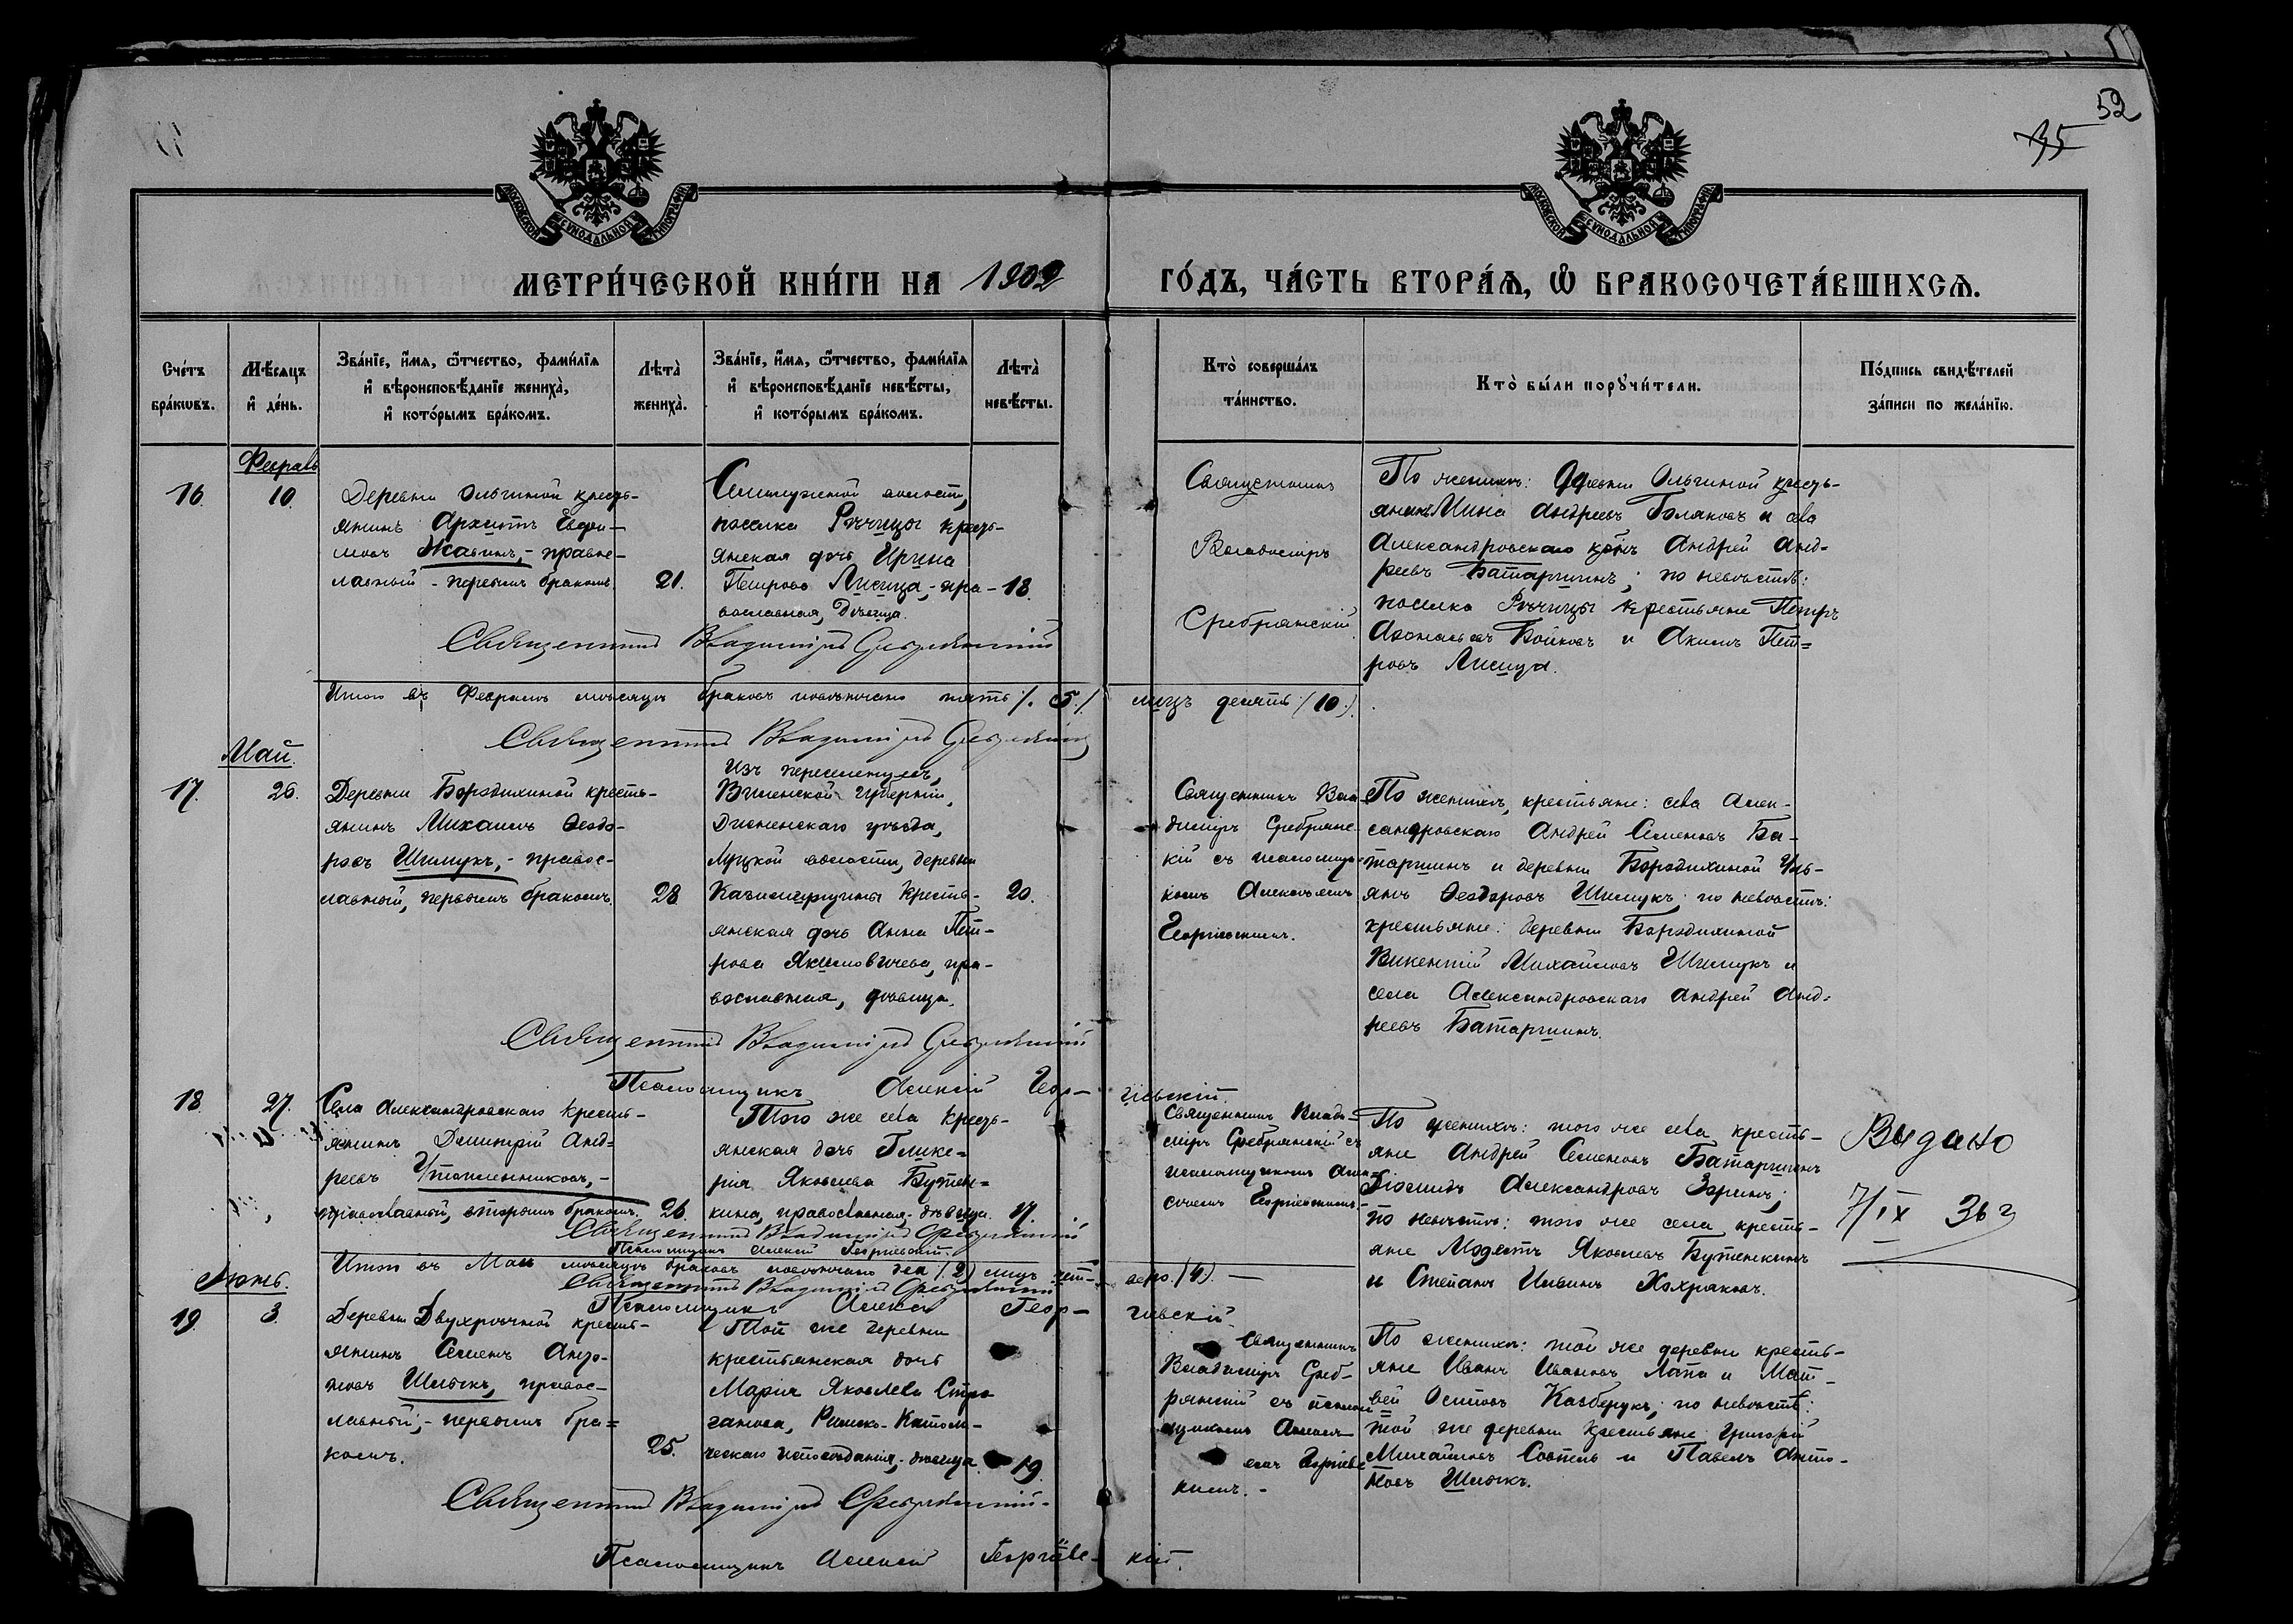 52
35
МОСКОВСКОЙ СѴНОДАЛЬНОЙ ТИПОГРАФІИ
МОСКОВСКОЙ СѴНОДАЛЬНОЙ ТИПОГРАФІИ
МЕТРИ́ЧЕСКОЙ КНИ́ГИ НА 1902
ГО́ДЪ, ЧА́СТЬ ВТОРА́Ѧ, Ѽ БРАКОСОЧЕТА́ВШИХСѦ.
Сче́тъ
бра́кѡвъ.
Мѣ́сѧцъ
и҆ де́нь.
Зва́нїе, и҆́мѧ, ѻ҆́тчество, фами́лїѧ
и҆ вѣроисповѣ́данїе жениха̀,
и҆ кото́рымъ бра́комъ.
Лѣта̀
жениха̀.
Зва́нїе, и҆́мѧ, ѻ҆́тчество, фами́лїѧ
и҆ вѣроисповѣ́данїе невѣ́сты,
и҆ кото́рымъ бра́комъ.
Лѣта̀
невѣ́сты.
Кто̀ соверша́лъ
та́инство.
Кто̀ бы́ли порꙋчи́тели.
По́дпись свидѣ́телей
за́писи по жела́нїю.
Февраль
16.
10.
Деревни Ольгиной кресть-
янинъ Архипъ Евдоки-
мовъ Жавинъ, - правос-
лавный - первымъ бракомъ
21.
волости,
поселка Рѣчицы кресть-
янская дочь Ирина
Петрова Лисица, - пра-
вославная, дѣвица.
18.
Священникъ
Владимиръ
Сребрянскій
По женихѣ: деревни Ольгиной кресть-
янинъ Мина Андреевъ Поляковъ и села
Александровскаго кр-нъ Андрей Анд-
реевъ Батаршинъ; по невѣстѣ:
поселка Рѣчицы крестьяне Петръ
Аѳанасьевъ Бойковъ и Акимъ Пет=
ровъ Лисица.
Священникъ Владиміръ Сребрянскій
Итого въ Февралѣ мѣсяцѣ браковъ повѣнчано пять (5.) лицъ десять (10).
Священникъ Владиміръ Сребрянскій
Май.
17.
26.
Деревни Бородихиной кресть-
янинъ Михаилъ Ѳеодо-
ровъ Шимукъ, - правос-
лавный, первымъ бракомъ.
28
Изъ переселенцевъ,
Виленской губерніи,
Дисненскаго уѣзда,
Лужкой волости, деревни
Казимирщины кресть-
янская дочь Анна Пет-
рова Якимовичева, пра-
вославная, дѣвица.
20.
Священникъ Вла-
димиръ Сребрянс-
кій съ псаломщи-
комъ Алексѣемъ
Георгіевскимъ.
По женихѣ, крестьяне: села Алек-
сандровскаго Андрей Семеновъ Ба-
таршинъ и деревни Бородихиной Уль-
янъ Ѳеодоровъ Шимукъ; по невѣстѣ:
крестьяне: деревни Бородихиной
Викентій Михайловъ Шимукъ и
села Александровскаго Андрей Анд-
реевъ Батаршинъ.
Священникъ Владиміръ Сребрянскій
Псаломщикъ Алексій Геор-гіевскій.
18.
27.
Села Александровскаго кресть-
янинъ Димитрій Анд=
реевъ Утаменниковъ, -
православный, вторымъ бракомъ.
26.
Того же села кресть-
янская дочь Глике=
рія Яковлева Бутен=
кина, православная, - дѣвица.
17.
Священникъ Влади-
миръ Сребрянскій съ
псаломщикомъ Алек-
сѣемъ Георгіевскимъ.
По женихѣ: того же села кресть-
яне Андрей Семеновъ Батаршинъ
Діомидъ Александровъ Зоринъ;
по невѣстѣ: того же села кресть-
яне Модестъ Яковлевъ Бутенкинъ
и Степанъ Ильинъ Хохряковъ.
Выдано
7/IX 36 г
Священникъ Владиміръ Сребрянскій
Псаломщикъ Алексій Георгіевскій.
Итого въ Маѣ мѣсяцѣ браковъ повѣнчано два (2) лицъ чет-веро. (4). -
Священникъ Владиміръ Сребрянскій
Псаломщикъ Алексій Геор-гіевскій.
Іюнь.
19.
3.
Деревни Двухрѣчной кресть-
янинъ Семенъ Анто-
новъ Шибыкъ, правос-
лавный, - первымъ бра=
комъ.
25.
Той же деревни
крестьянская дочь
Марія Яковлева Стро-
ганова, Римско-Католи-
ческаго исповѣданія, - дѣвица
19.
Священникъ
Владимиръ Среб-
рянскій съ псалом-
щикомъ Алексѣ-
емъ Георгіевс-
кимъ. -
По женихѣ: той же деревни кресть-
яне Иванъ Ивановъ Лапа и Мат-
вей Осиповъ Казберукъ; по невѣстѣ:
той же деревни крестьяне Григорій
Михайловъ и Павелъ Анто-
новъ Шибыкъ.
Священникъ Владиміръ Сребрянскій. -
Псаломщикъ Алексій Георгіевс-кій.